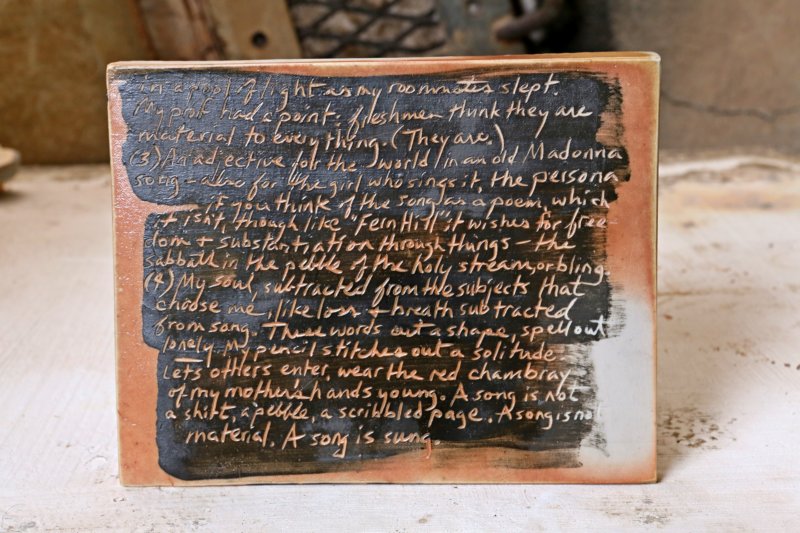 in a pool of light as my roommates slept.
My prof had a point: freshmen think they are
material to everything. (They are.)
(3) An adjective for the world in an old Madonna
song – also for the girl who sings it, the persona
if you think of the song as a poem, which
it isn't, though like "Fern Hill" it wishes for free-
dom + substantiation through things – the
sabbath in the pebble of the holy stream, or bling.
(4) My soul, subtracted from the subjects that
choose me, like loss + breath subtracted
from song. These words cut a shape, spell out
lonely. My pencil stitches out a solitude
lets others enter, wear the red chambray
of my mother's hands young. A song is not
a shirt, a pebble, a scribbled page. A song is not
material. A song is sung.